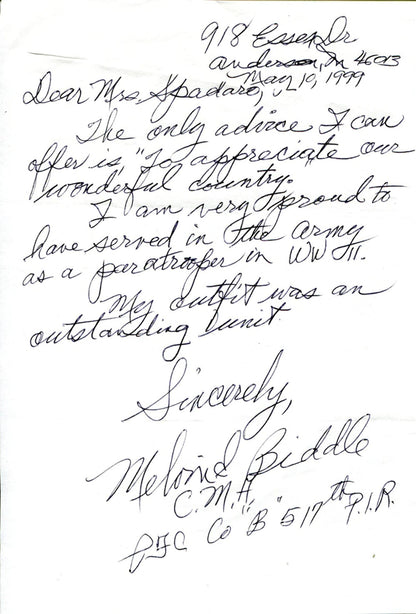 918 Essex Dr
Anderson, In 46013
May 10, 1999
Dear Mrs. Spadaro,
The only advice I can
offer is, "To appreciate our
wonderful country."
I am very proud to
have served in the army
as a paratrooper in WW II.
My outfit was an
outstanding unit.
Sincerely,
Melvin E. Biddle
C.M.H.
PFC Co "B" 517th P.I.R.